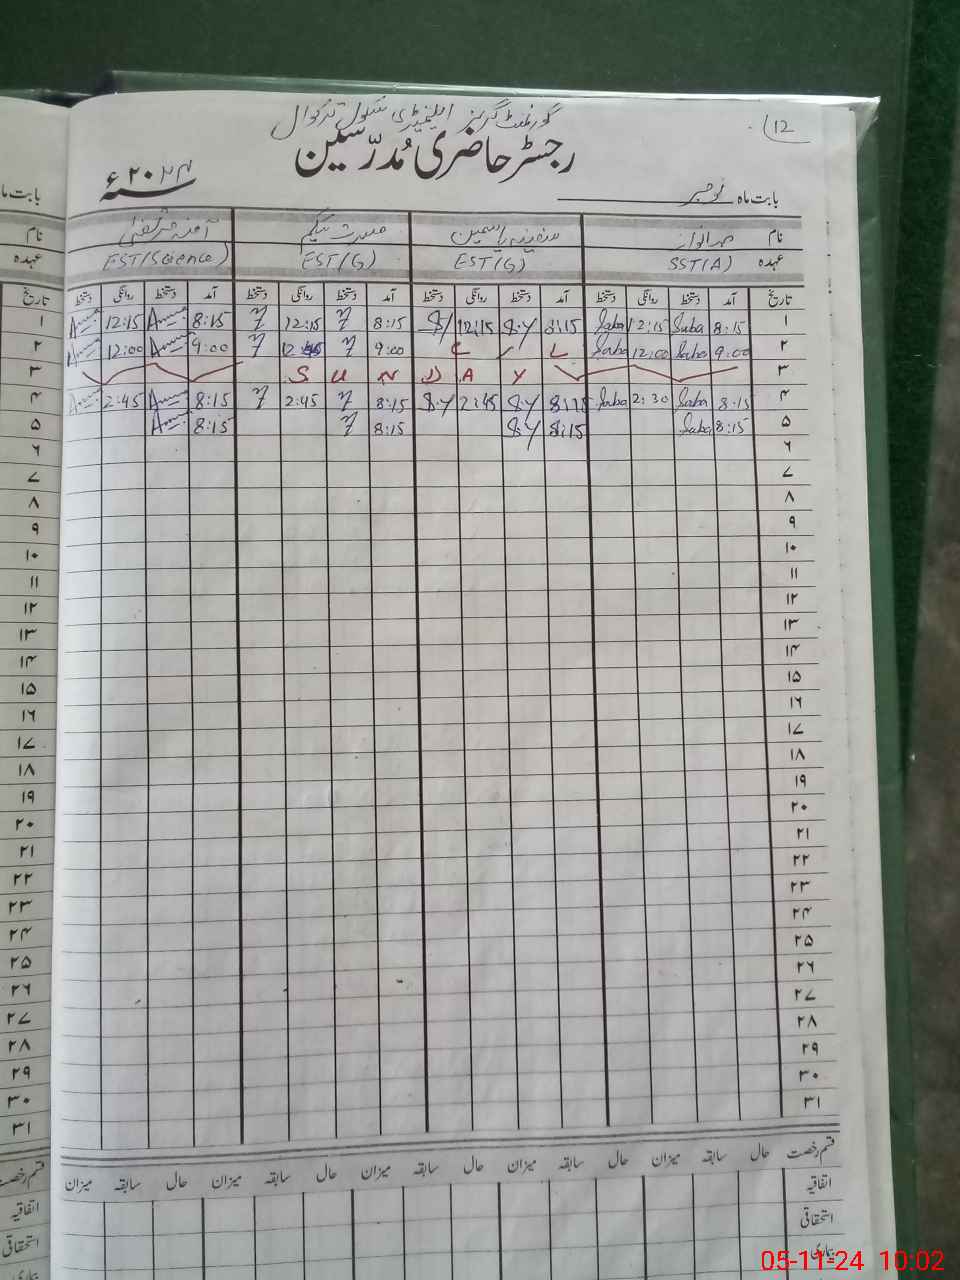 12
گورنمنٹ گرلز ایلیمنٹری سکول ترکوال
رجسٹر حاضری مُدرّسین
بابت ماہ نومبر سنہ ۲۰۲۴ ء
نام صبا نواز سفینہ یاسمین مسرت بیگم آمنہ مرتضیٰ
عہدہ SST(A) EST(G) EST(G) EST(Science)
تاریخ آمد دستخط روانگی دستخط آمد دستخط روانگی دستخط آمد دستخط روانگی دستخط آمد دستخط روانگی دستخط
۱ 8:15 Saba 12:15 Saba 8:15 S.Y 12:15 8:15 12:15 8:15 12:15
۲ 9:00 Saba 12:00 Saba L C 9:00 9:00 12:00
۳ S U N D A Y
۴ 8:15 Saba 2:30 Saba 8:15 S.Y 2:45 S.Y 8:15 2:45 8:15 2:45
۵ 8:15 Saba 8:15 S.Y 8:15 8:15
۶
۷
۸
۹
۱۰
۱۱
۱۲
۱۳
۱۴
۱۵
۱۶
۱۷
۱۸
۱۹
۲۰
۲۱
۲۲
۲۳
۲۴
۲۵
۲۶
۲۷
۲۸
۲۹
۳۰
۳۱
قسم رخصت حال سابقہ میزان حال سابقہ میزان حال سابقہ میزان حال سابقہ میزان
اتفاقیہ
استحقاقی
بیماری
بابت ما
نام
عہدہ
تاریخ
۱
۲
۳
۴
۵
۶
۷
۸
۹
۱۰
۱۱
۱۲
۱۳
۱۴
۱۵
۱۶
۱۷
۱۸
۱۹
۲۰
۲۱
۲۲
۲۳
۲۴
۲۵
۲۶
۲۷
۲۸
۲۹
۳۰
۳۱
قسم رخصت
اتفاقیہ
استحقاقی
بیماری
05-11-24 10:02